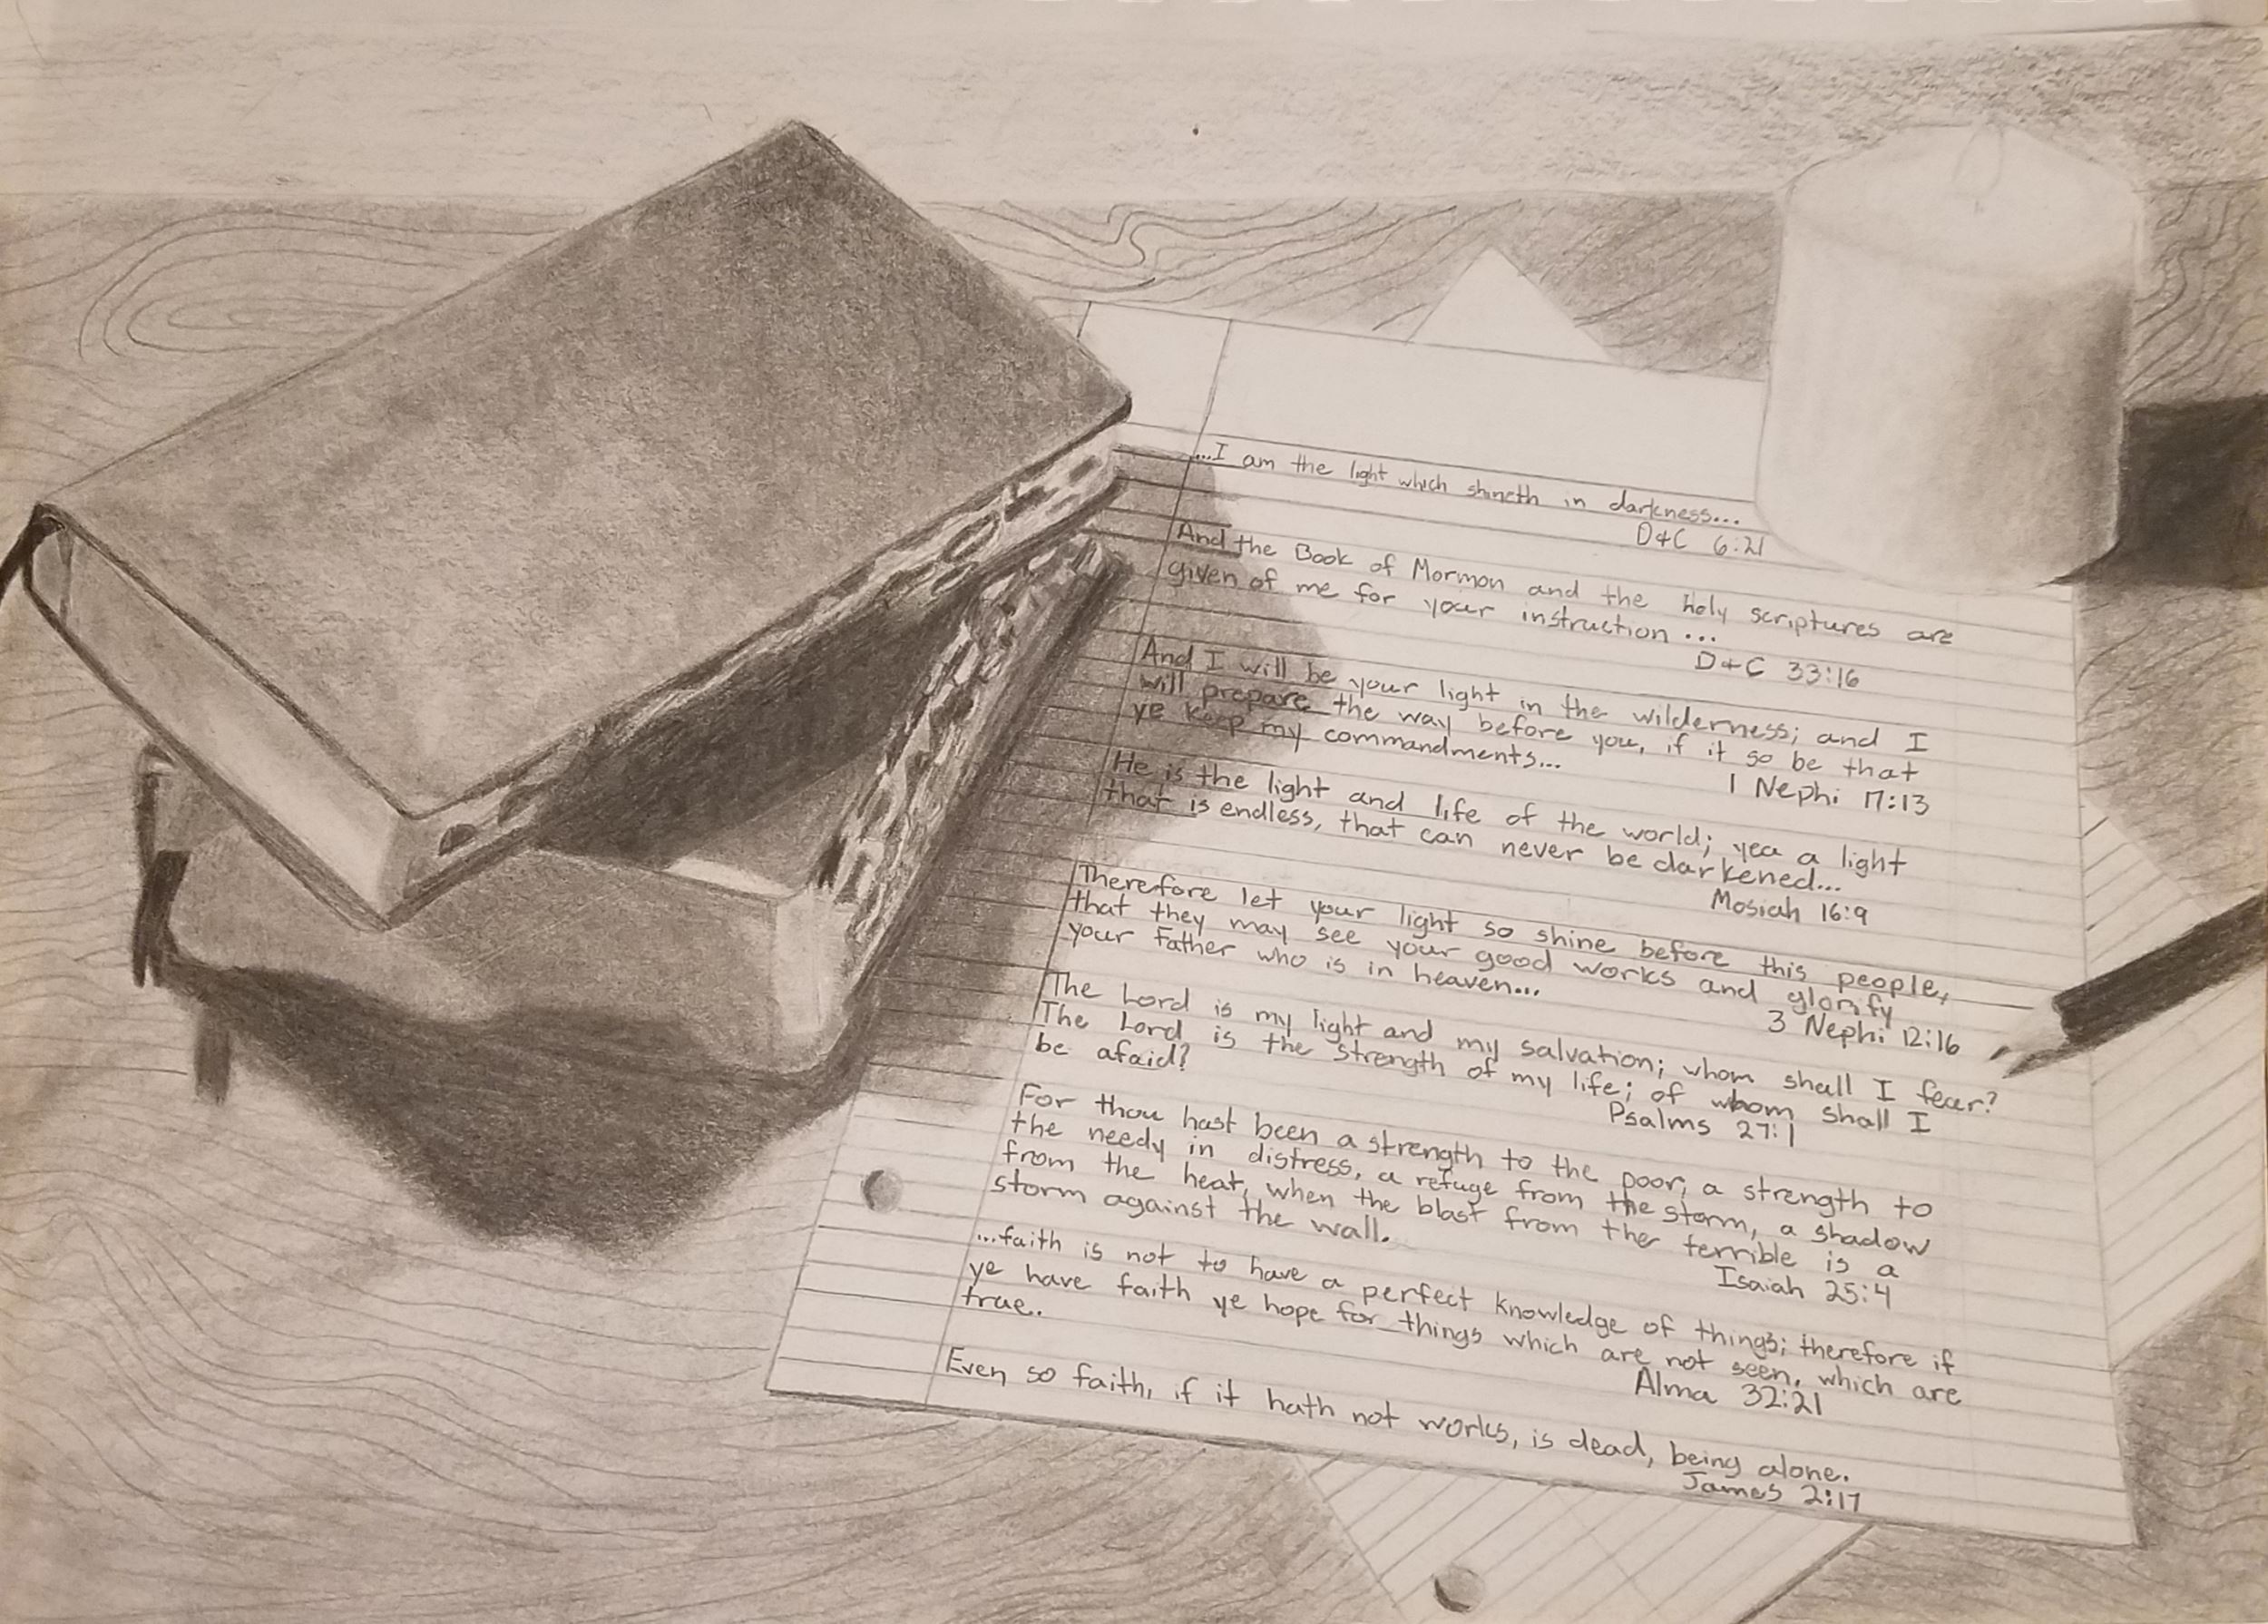 ...I am the light which shineth in darkness...
D+C 6:21
And the Book of Mormon and the holy scriptures are
given of me for your instruction...
D+C 33:16
And I will be your light in the wilderness; and I
will prepare the way before you, if it so be that
ye keep my commandments...
1 Nephi 17:13
He is the light and life of the world; yea a light
that is endless, that can never be darkened...
Mosiah 16:9
Therefore let your light so shine before this people,
that they may see your good works and glorify
your Father who is in heaven...
3 Nephi 12:16
The Lord is my light and my salvation; whom shall I fear?
The Lord is the strength of my life; of whom shall I
be afaid?
Psalms 27:1
For thou hast been a strength to the poor, a strength to
the needy in distress, a refuge from the storm, a shadow
from the heat, when the blast from the terrible is a
storm against the wall.
Isaiah 25:4
...faith is not to have a perfect knowledge of things; therefore if
ye have faith ye hope for things which are not seen, which are
true.
Alma 32:21
Even so faith, if it hath not works, is dead, being alone.
James 2:17